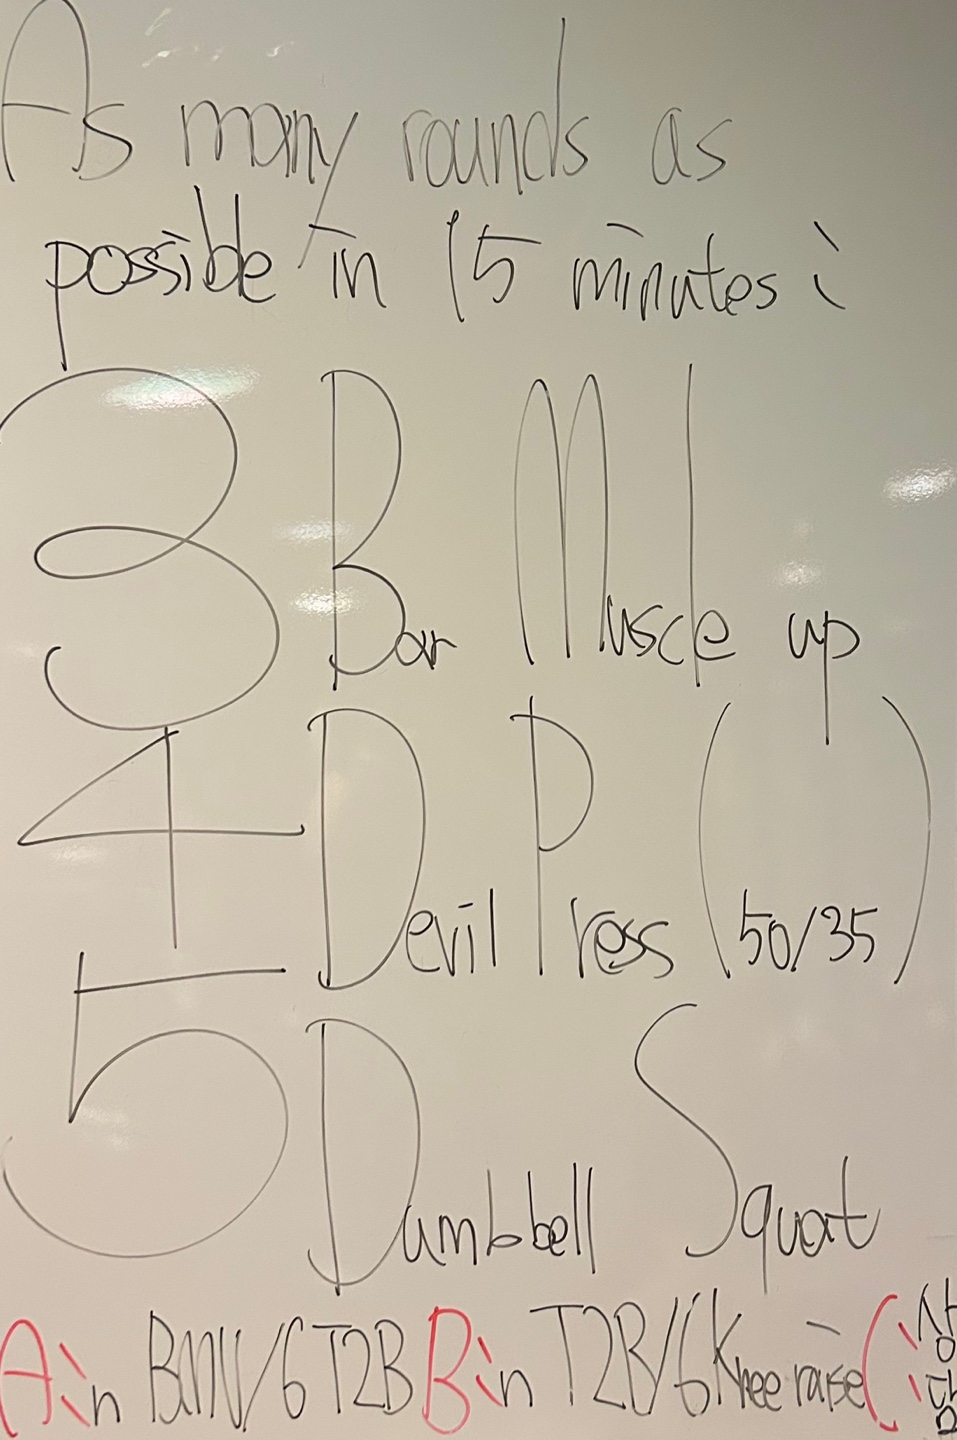 As many rounds as
possible in 15 minutes :
3 Bar Muscle up
4 Devil Press (50/35)
5 Dumbbell Squat
A: n BMU/6 T2B B: n T2B/6 Knee raise C: 상담